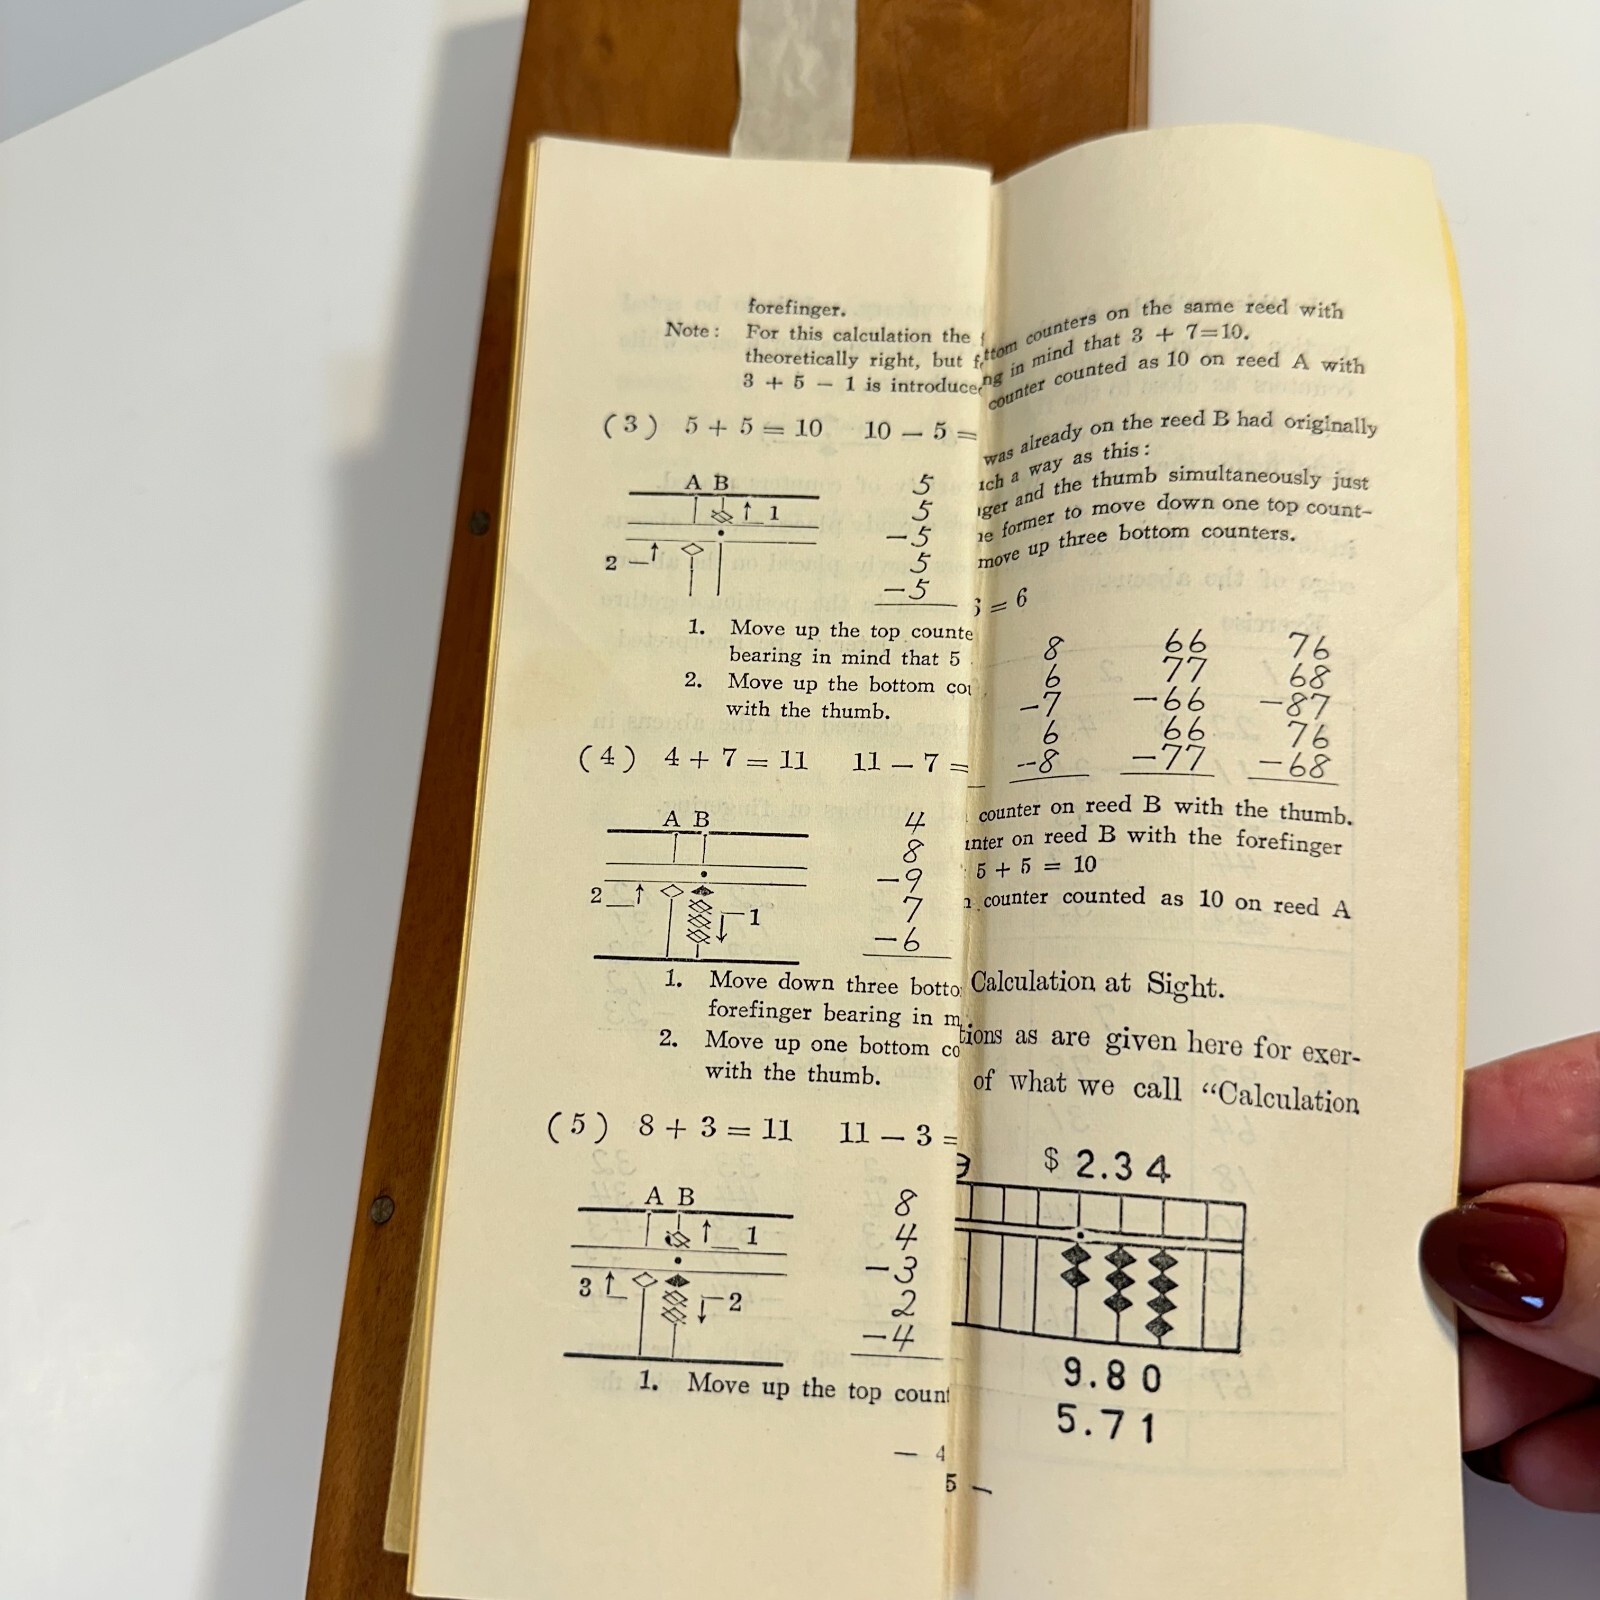 forefinger.
Note: For this calculation the
theoretically right, but
3 + 5 − 1 is introduce
(3) 5 + 5 = 10 10 − 5 =
A B
1
2
5
5
−5
5
−5
1. Move up the top counte
bearing in mind that 5
2. Move up the bottom cou
with the thumb.
(4) 4 + 7 = 11 11 − 7 =
A B
2
1
4
8
−9
7
−6
1. Move down three botto
forefinger bearing in m
2. Move up one bottom co
with the thumb.
(5) 8 + 3 = 11 11 − 3 =
A B
1
3
2
8
4
−3
2
−4
1. Move up the top count
— 4
ttom counters on the same reed with
ng in mind that 3 + 7=10.
counter counted as 10 on reed A with
was already on the reed B had originally
uch a way as this:
ger and the thumb simultaneously just
e former to move down one top count-
move up three bottom counters.
= 6
8 66 76
6 77 68
−7 −66 −87
6 66 76
−8 −77 −68
counter on reed B with the thumb.
unter on reed B with the forefinger
5 + 5 = 10
counter counted as 10 on reed A
Calculation at Sight.
tions as are given here for exer-
of what we call “Calculation
$ 2.34
9.80
5.71
5 —